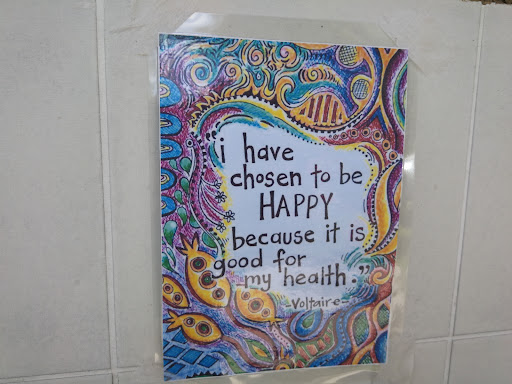 "i have
chosen to be
HAPPY
because it is
good for
my health."
-Voltaire-